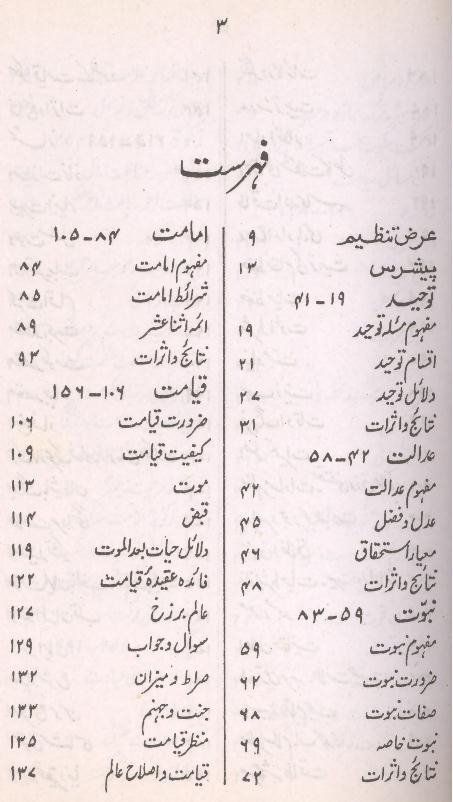 ۳
فہرست
عرض تنظیم ۹
پیشرس ۱۳
توحید ۱۹-۴۱
مفہوم مسئلہ توحید ۱۹
اقسام توحید ۲۱
دلائل توحید ۲۷
نتائج و اثرات ۳۱
عدالت ۴۲-۵۸
مفہوم عدالت ۴۲
عدل و فضل ۴۵
معیار استحقاق ۴۶
نتائج و اثرات ۴۸
نبوّت ۵۹-۸۳
مفہوم نبوت ۵۹
ضرورت نبوت ۶۲
صفات نبوت ۶۸
نبوت خاصہ ۶۹
نتائج و اثرات ۷۲
امامت ۸۴-۱۰۵
مفہوم امامت ۸۴
شرائط امامت ۸۵
ائمہ اثنا عشر ۸۹
نتائج و اثرات ۹۳
قیامت ۱۰۶-۱۵۶
ضرورت قیامت ۱۰۶
کیفیت قیامت ۱۰۹
موت ۱۱۳
قبض ۱۱۴
دلائل حیات بعد الموت ۱۱۹
فائدہ عقیدۂ قیامت ۱۲۲
عالم برزخ ۱۲۷
سوال و جواب ۱۲۹
صراط و میزان ۱۳۲
جنت و جہنم ۱۳۳
منظر قیامت ۱۳۵
قیامت و اصلاح عالم ۱۳۷